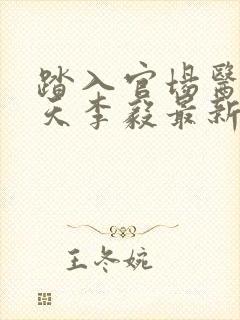 踏入官场医
天李毅最新
王冬婉